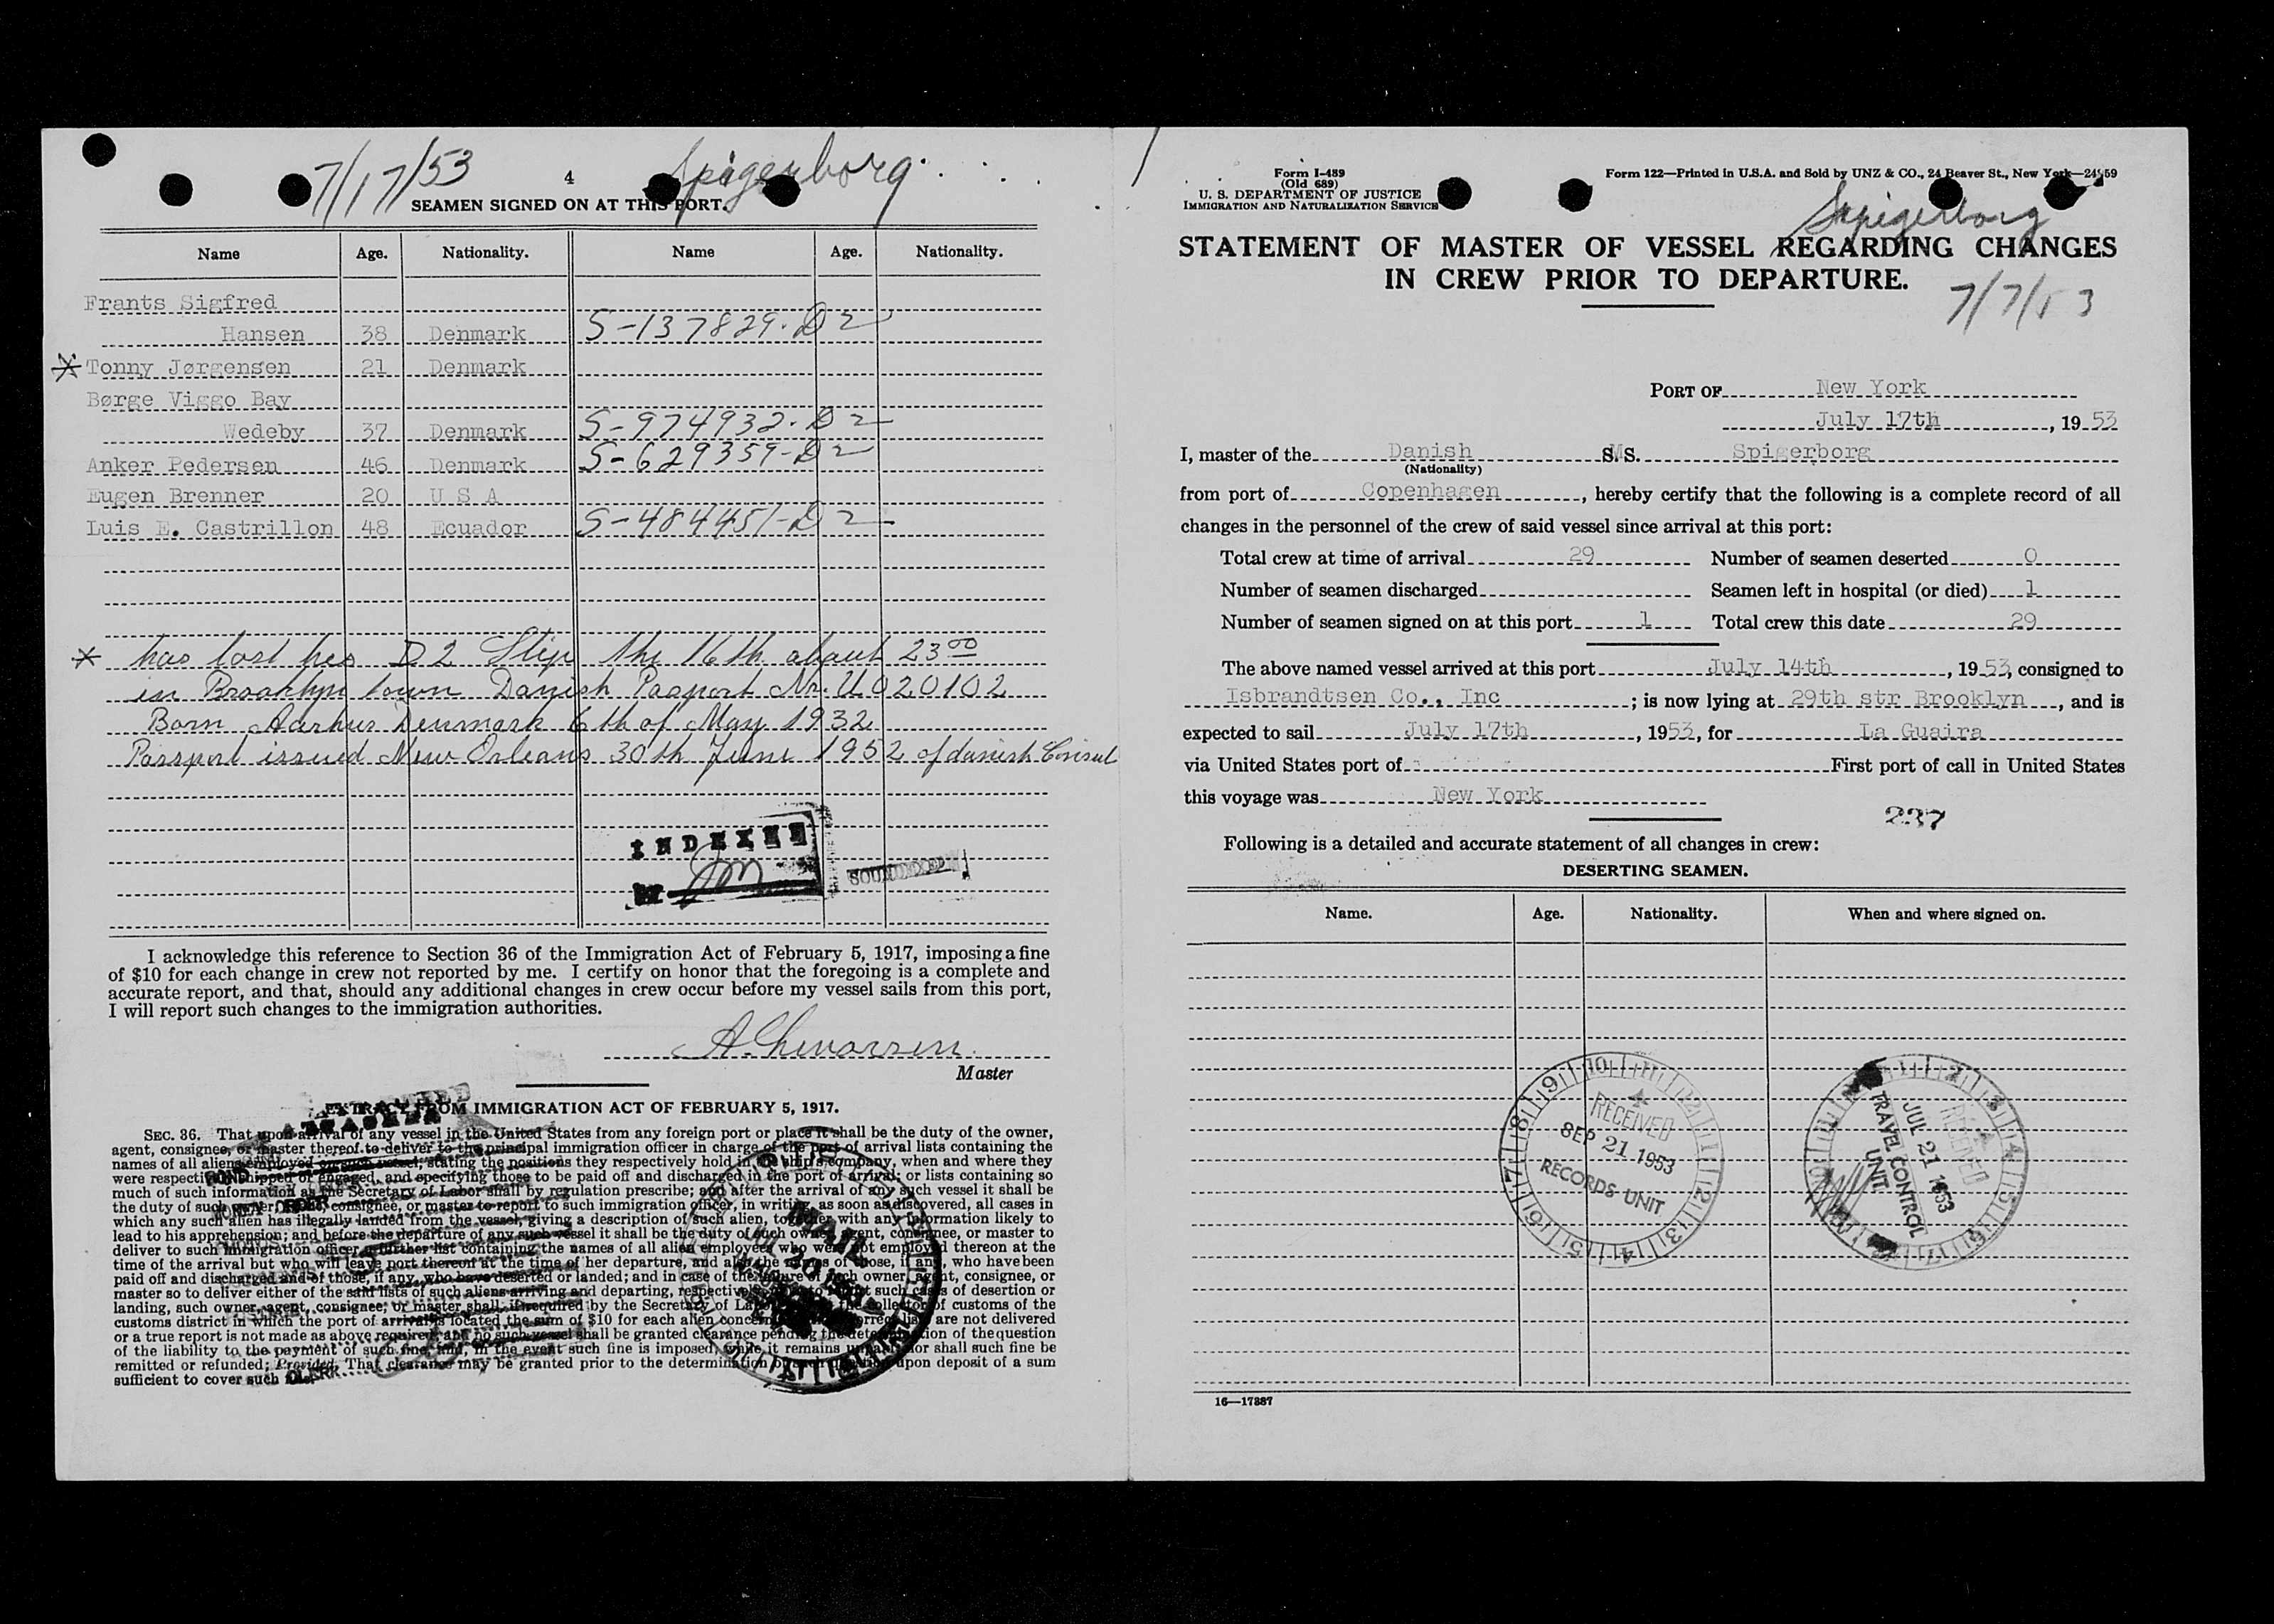 7/17/53 Spigerborg.
4
SEAMEN SIGNED ON AT THIS PORT.
Name Age. Nationality. Name Age. Nationality.
Frants Sigfred
Hansen 38 Denmark S-137829-D2
* Tonny Jørgensen 21 Denmark
Børge Viggo Bay
Wedeby 37 Denmark S-974932-D2
Anker Pedersen 46 Denmark S-629359-D2
Eugen Brenner 20 U S A
Luis E. Castrillon 48 Ecuador S-484451-D2
* has lost his D2 Slip the 16th about 23 00
in Brooklyn town Danish Pasport Nr. U020102
Born Aarhus Denmark 6th of May 1932
Passport issued New Orleans 30th June 1952 of danish Consul
INDEXED
BY Jm
SOUNDEXED
I acknowledge this reference to Section 36 of the Immigration Act of February 5, 1917, imposing a fine
of $10 for each change in crew not reported by me. I certify on honor that the foregoing is a complete and
accurate report, and that, should any additional changes in crew occur before my vessel sails from this port,
I will report such changes to the immigration authorities.
Master
EXTRACT FROM IMMIGRATION ACT OF FEBRUARY 5, 1917.
SEC. 36. That upon arrival of any vessel in the United States from any foreign port or place it shall be the duty of the owner,
agent, consignee, or master thereof to deliver to the principal immigration officer in charge of the port of arrival lists containing the
names of all aliens employed on such vessel, stating the positions they respectively hold in the ship's company, when and where they
were respectively shipped or engaged, and specifying those to be paid off and discharged in the port of arrival; or lists containing so
much of such information as the Secretary of Labor shall by regulation prescribe; and after the arrival of any such vessel it shall be
the duty of such owner, agent, consignee, or master to report to such immigration officer, in writing, as soon as discovered, all cases in
which any such alien has illegally landed from the vessel, giving a description of such alien, together with any information likely to
lead to his apprehension; and before the departure of any such vessel it shall be the duty of such owner, agent, consignee, or master to
deliver to such immigration officer a further list containing the names of all alien employees who were not employed thereon at the
time of the arrival but who will leave port thereon at the time of her departure, and also the names of those, if any, who have been
paid off and discharged and of those, if any, who have deserted or landed; and in case of the failure of such owner, agent, consignee, or
master so to deliver either of the said lists of such aliens arriving and departing, respectively, or so to report such cases of desertion or
landing, such owner, agent, consignee, or master shall, if required by the Secretary of Labor, pay to the collector of customs of the
customs district in which the port of arrival is located the sum of $10 for each alien concerning whom correct lists are not delivered
or a true report is not made as above required; and no such vessel shall be granted clearance pending the determination of the question
of the liability to the payment of such fine, and, in the event such fine is imposed, while it remains unpaid, nor shall such fine be
remitted or refunded; Provided, That clearance may be granted prior to the determination of such question upon deposit of a sum
sufficient to cover such fine.
Form I-489
(Old 689)
U. S. DEPARTMENT OF JUSTICE
IMMIGRATION AND NATURALIZATION SERVICE
Form 122—Printed in U.S.A. and Sold by UNZ & CO., 24 Beaver St., New York
Spigerborg
STATEMENT OF MASTER OF VESSEL REGARDING CHANGES
IN CREW PRIOR TO DEPARTURE.
7/7/53
PORT OF New York
July 17th, 1953
I, master of the Danish S.M.S. Spigerborg
(Nationality)
from port of Copenhagen, hereby certify that the following is a complete record of all
changes in the personnel of the crew of said vessel since arrival at this port:
Total crew at time of arrival 29 Number of seamen deserted 0
Number of seamen discharged Seamen left in hospital (or died) 1
Number of seamen signed on at this port 1 Total crew this date 29
The above named vessel arrived at this port July 14th, 1953, consigned to
Isbrandtsen Co., Inc; is now lying at 29th str Brooklyn, and is
expected to sail July 17th, 1953, for La Guaira
via United States port of First port of call in United States
this voyage was New York
237
Following is a detailed and accurate statement of all changes in crew:
DESERTING SEAMEN.
Name. Age. Nationality. When and where signed on.
RECEIVED
SEP 21 1953
RECORDS UNIT
RECEIVED
JUL 21 1953
TRAVEL CONTROL
UNIT
16—17887